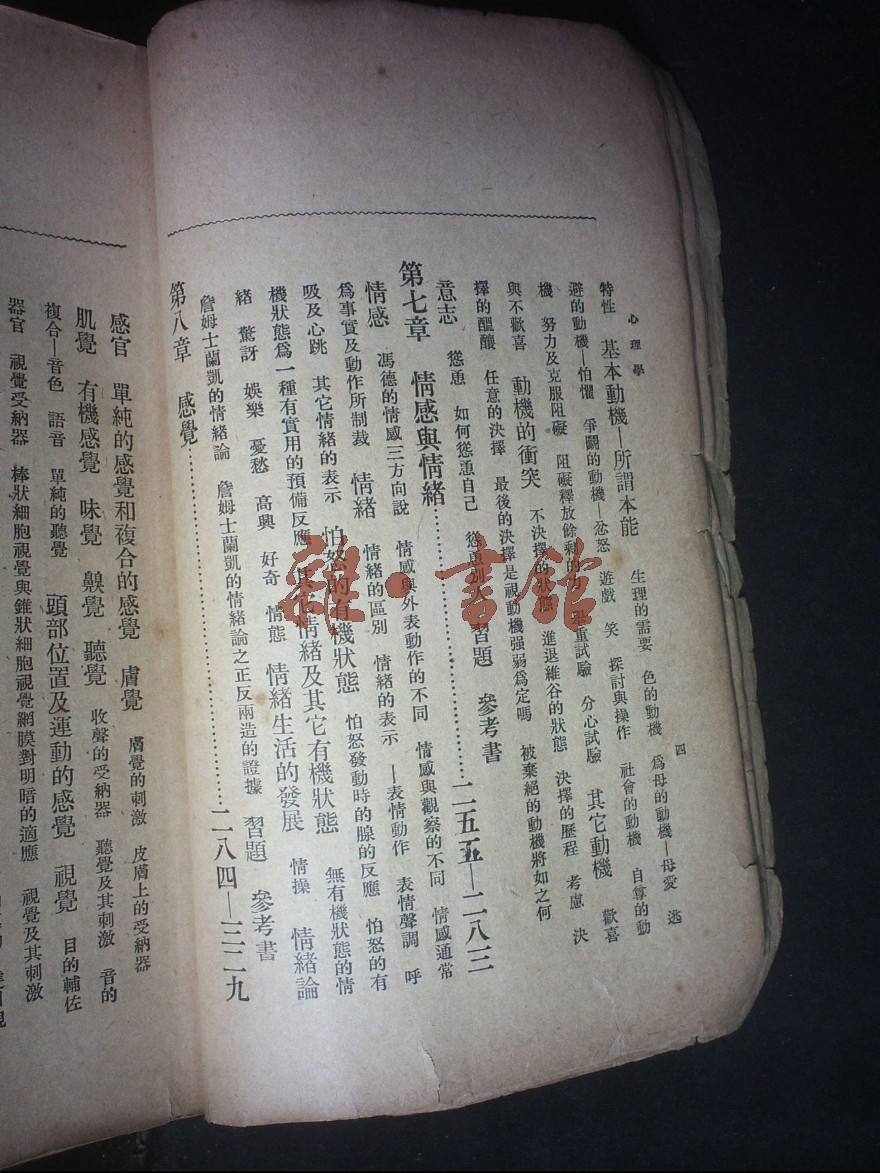 心理學
四
特性 基本動機—所謂本能 生理的需要 色的動機 爲母的動機—母愛 逃
避的動機—怕懼 爭鬪的動機—忿怒 遊戲 笑 探討與操作 社會的動機 自尊的動
機 努力及克服阻礙 阻礙釋放餘剩的力 舉重試驗 分心試驗 其它動機 歡喜
與不歡喜 動機的衝突 不決擇的狀態 進退維谷的狀態 決擇的歷程 考慮 決
擇的醞釀 任意的決擇 最後的決擇是視動機强弱爲定嗎 被棄絕的動機將如之何
意志 慫恿 如何慫恿自己 慫恿別人 習題 參考書
第七章 情感與情緒……二五五—二八三
情感 馮德的情感三方向說 情感與外表動作的不同 情感與觀察的不同 情感通常
爲事實及動作所制裁 情緒 情緒的區別 情緒的表示 —表情動作 表情聲調 呼
吸及心跳 其它情緒的表示 怕怒的有機狀態 怕怒發動時的腺的反應 怕怒的有
機狀態爲一種有實用的預備反應 其它情緒及其它有機狀態 無有機狀態的情
緒 驚訝 娛樂 憂愁 高興 好奇 情態 情緒生活的發展 情操 情緒論
詹姆士蘭凱的情緒論 詹姆士蘭凱的情緒論之正反兩造的證據 習題 參考書
第八章 感覺……二八四—三二九
感官 單純的感覺和複合的感覺 膚覺 膚覺的刺激 皮膚上的受納器
肌覺 有機感覺 味覺 齅覺 聽覺 收聲的受納器 聽覺及其刺激 音的
複合—音色 語音 單純的聽覺 頭部位置及運動的感覺 視覺 目的輔佐
器官 視覺受納器 棒狀細胞視覺與錐狀細胞視覺網膜對明暗的適應 視覺及其刺激
雜·書館